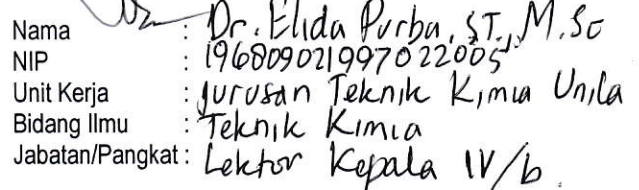 Nama : Dr. Elida Purba, ST., M.Sc
NIP : 196809021997022005
Unit Kerja : Jurusan Teknik Kimia Unila
Bidang Ilmu : Teknik Kimia
Jabatan/Pangkat : Lektor Kepala IV/b